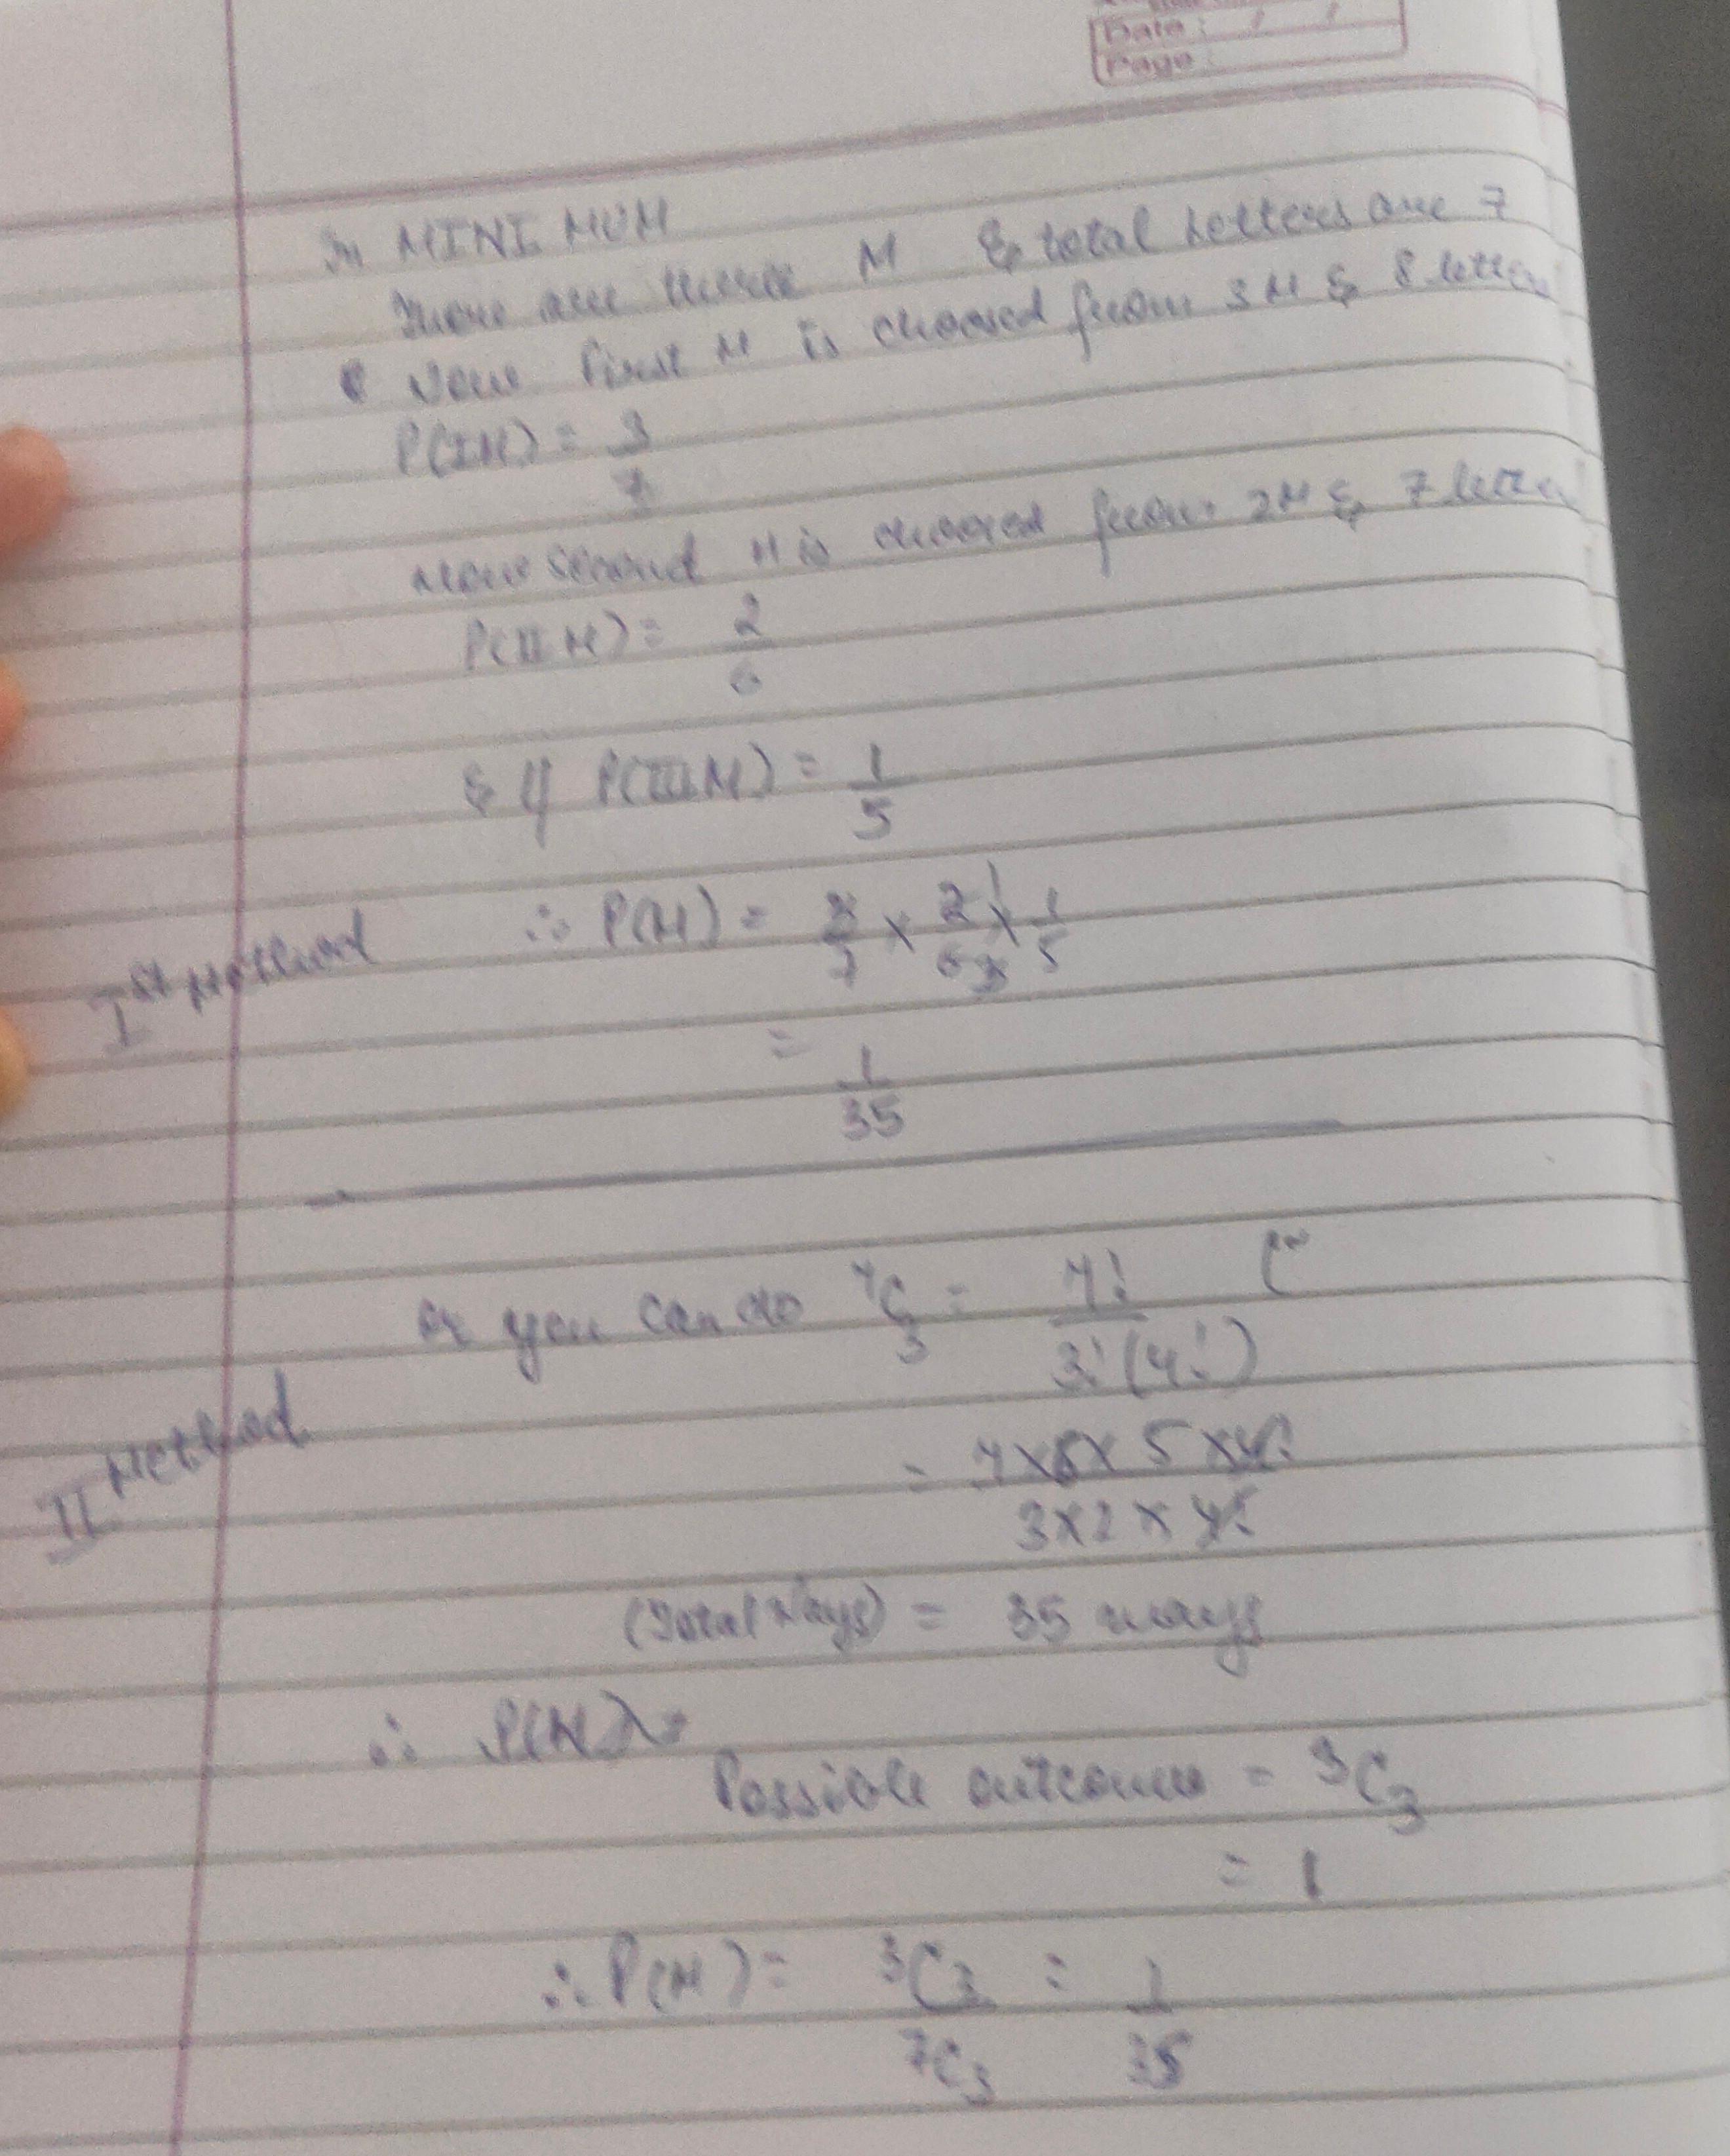 Date : / /
Page :
In MINIMUM
There are three M & total letters are 7
Now first M is choosed from 3M & 8 letters
P(IM) = 3/7
Now second M is choosed from 2M & 7 letter
P(II M) = 2/6
& lly P(III M) = 1/5
Ist Method ∴ P(M) = 3/7 × 2/6 × 1/5
= 1/35
or you can do 7C3 = 7! / 3!(4!)
II Method
= 7×6×5×4! / 3×2×4!
(Total Ways) = 35 ways
∴ P(M) =
Possible outcomes = 3C3
= 1
∴ P(M) = 3C3 / 7C3 = 1/35